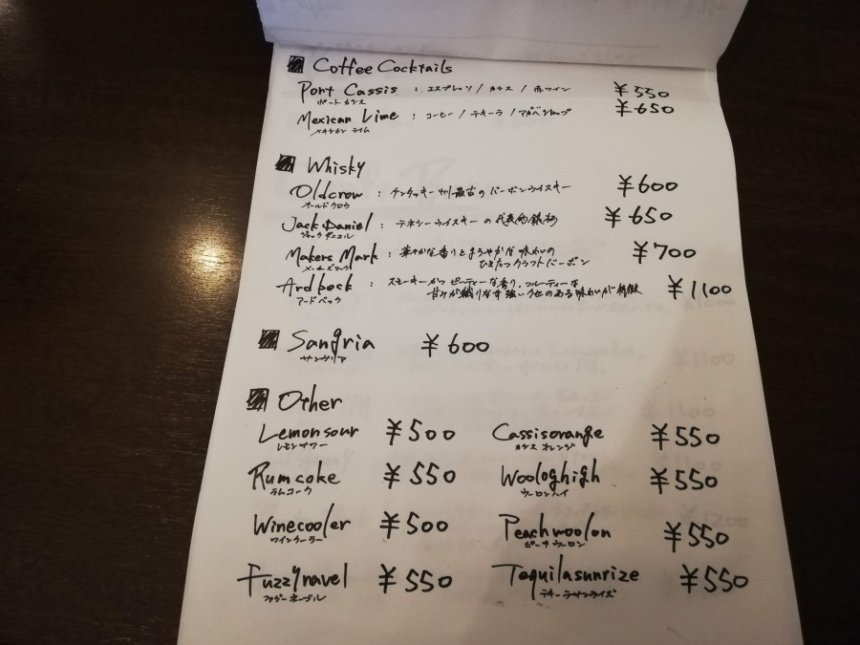 Coffee Cocktails
Port Cassis : エスプレッソ / カシス / 赤ワイン ¥550
ポートカシス
Mexican Lime : コーヒー / テキーラ / アガベシロップ ¥650
メキシカン ライム
Whisky
Oldcrow : ケンタッキー州最古のバーボンウイスキー ¥600
オールドクロウ
Jack Daniel : テネシーウイスキーの代表的銘柄 ¥650
ジャックダニエル
Makers Mark : 華やかな香りとまろやかな味わいの ¥700
メーカーズマーク ひきたつクラフトバーボン
Ardbeck : スモーキーかつピーティーな香り、フルーティーな ¥1100
アードベック 甘みが織りなす強いクセのある味わいが特徴
Sangria ¥600
サングリア
Other
Lemonsour ¥500 Cassisorange ¥550
レモンサワー カシスオレンジ
Rumcoke ¥550 Woologhigh ¥550
ラムコーク ウーロンハイ
Winecooler ¥500 Peachwoolon ¥550
ワインクーラー ピーチウーロン
Fuzzynavel ¥550 Tequilasunrize ¥550
ファジーネーブル テキーラサンライズ